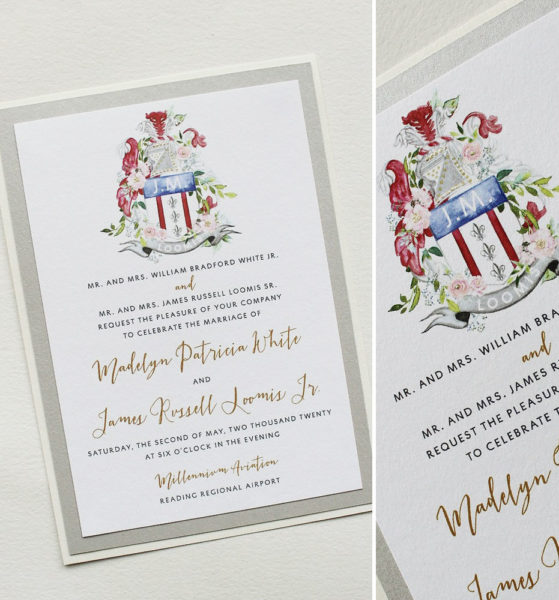 J.M.
LOOMIS
MR. AND MRS. WILLIAM BRADFORD WHITE JR.
and
MR. AND MRS. JAMES RUSSELL LOOMIS SR.
REQUEST THE PLEASURE OF YOUR COMPANY
TO CELEBRATE THE MARRIAGE OF
Madelyn Patricia White
AND
James Russell Loomis Jr.
SATURDAY, THE SECOND OF MAY, TWO THOUSAND TWENTY
AT SIX O'CLOCK IN THE EVENING
Millennium Aviation
READING REGIONAL AIRPORT
J.M.
LOOMIS
MR. AND MRS. WILLIAM BRADFOR
and
MR. AND MRS. JAMES RUSSE
REQUEST THE PLEASURE
TO CELEBRATE
Madelyn
James